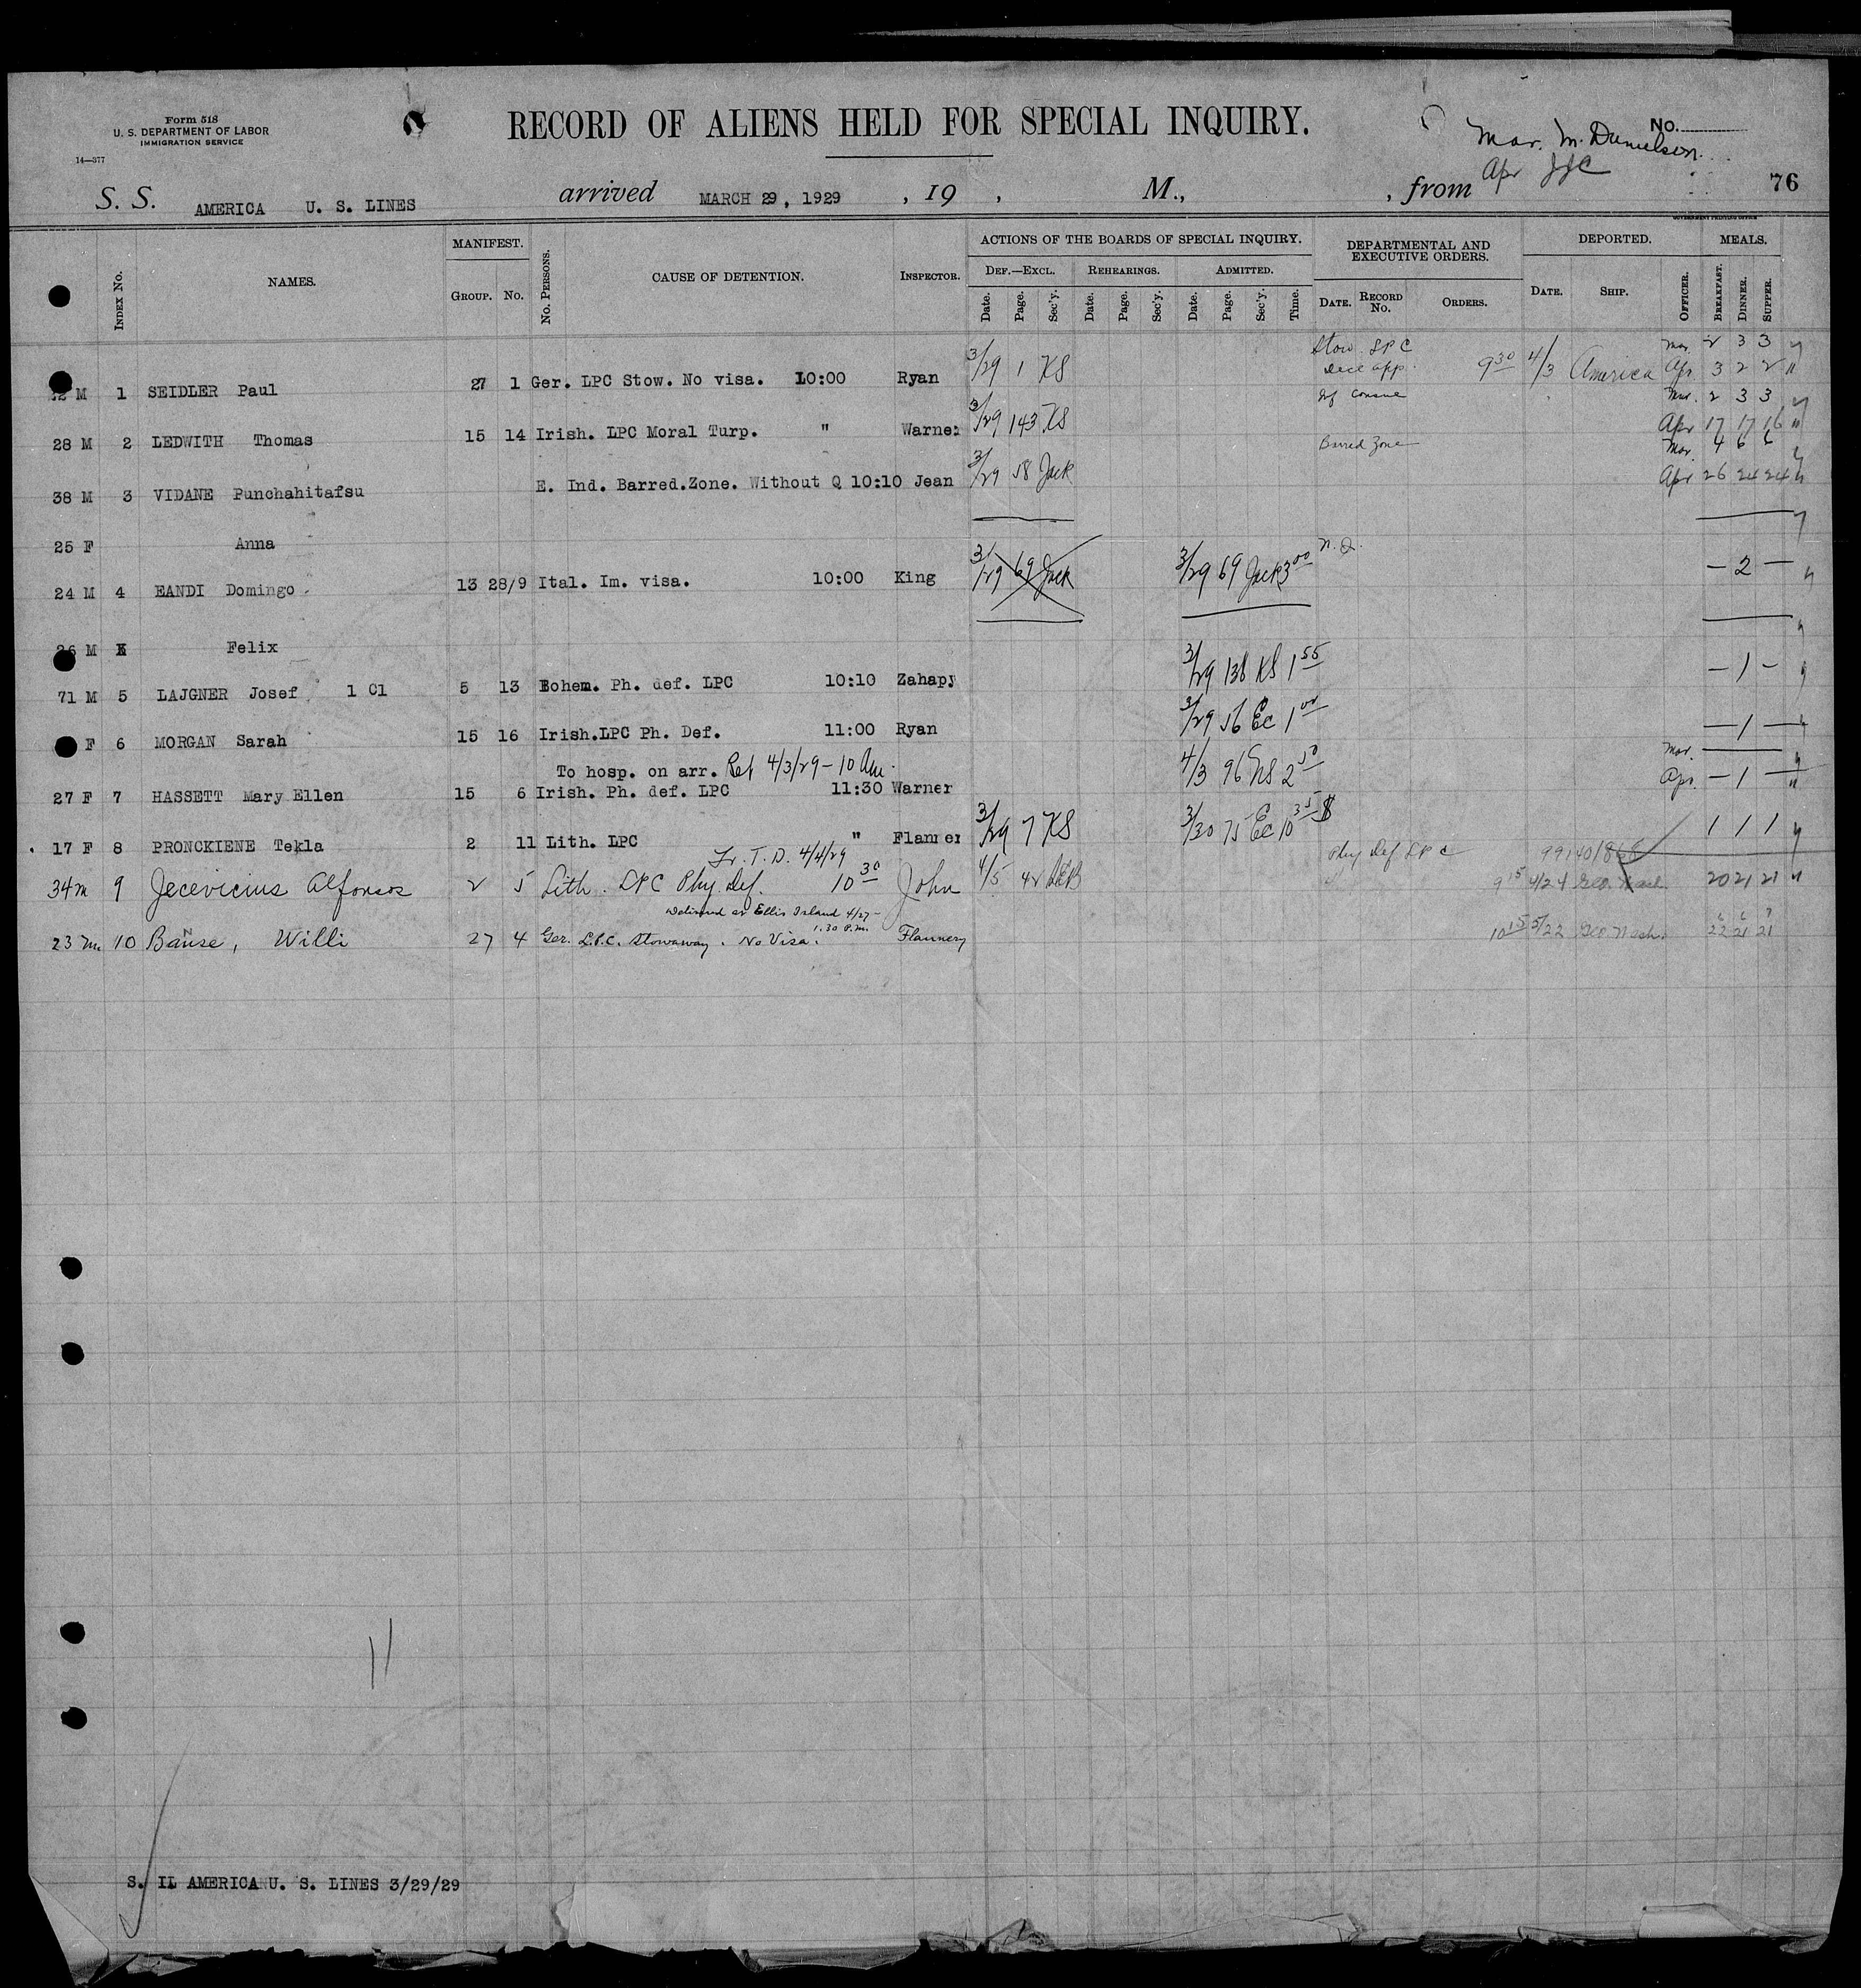 Form 518
U. S. DEPARTMENT OF LABOR
IMMIGRATION SERVICE
14—377
RECORD OF ALIENS HELD FOR SPECIAL INQUIRY.
No.
Mar. M. Danielson
Apr JJC
S. S. AMERICA U. S. LINES arrived MARCH 29, 1929 , 19 , M., , from
76
GOVERNMENT PRINTING OFFICE
INDEX NO. NAMES. MANIFEST. GROUP. NO. NO. PERSONS. CAUSE OF DETENTION. INSPECTOR.
ACTIONS OF THE BOARDS OF SPECIAL INQUIRY. DEF.—EXCL. REHEARINGS. ADMITTED.
Date. Page. Sec'y. Date. Page. Sec'y. Date. Page. Sec'y. Time.
DEPARTMENTAL AND EXECUTIVE ORDERS. DATE. RECORD NO. ORDERS.
DEPORTED. DATE. SHIP. OFFICER.
MEALS. BREAKFAST. DINNER. SUPPER.
Stow. LPC Mar. 2 3 3
22 M 1 SEIDLER Paul 27 1 Ger. LPC Stow. No visa. 10:00 Ryan 3/29 1 KS Decl app. 9 30 4/3 America Apr. 3 2 2 "
Mar. 2 3 3
28 M 2 LEDWITH Thomas 15 14 Irish. LPC Moral Turp. " Warner 3/29 143 KS Apr 17 17 16 "
Barred Zone Mar. 4 6 6
38 M 3 VIDANE Punchahitafsu E. Ind. Barred.Zone. Without Q 10:10 Jean 3/29 58 Jack Apr 26 24 24
25 F Anna
24 M 4 EANDI Domingo 13 28/9 Ital. Im. visa. 10:00 King 3/29 69 Jack 3/29 69 Jack 3 00 — 2 —
26 M Felix
71 M 5 LAJGNER Josef 1 Cl 5 13 Bohem. Ph. def. LPC 10:10 Zahapy 3/29 138 KS 1 55 — 1 —
F 6 MORGAN Sarah 15 16 Irish.LPC Ph. Def. 11:00 Ryan 3/29 56 Ec 1 00 — 1 —
To hosp. on arr. Ret 4/3/29 – 10 Am. Mar.
27 F 7 HASSETT Mary Ellen 15 6 Irish. Ph. def. LPC 11:30 Warner 4/3 96 2 50 Apr. — 1 — "
17 F 8 PRONCKIENE Tekla 2 11 Lith. LPC " Flanner 3/29 7 KS 3/30 75 Ec 10 35 1 1 1
Tr. T. D. 4/4/29 Phy Def LPC 99140/868
34 m 9 Jecevicius Alfonsos 2 5 Lith. LPC Phy. Def. 10 30 John 4/5 42 9 15 4/24 Geo. Wash. 20 21 21 "
Delivered at Ellis Island 4/27 –
1.30 P.M. 6 6 7
23 m. 10 Banse, Willi 27 4 Ger. L.P.C. Stowaway. No Visa. Flannery 10 15 5/22 Geo Wash. 22 21 21
11
S. IL AMERICA U. S. LINES 3/29/29